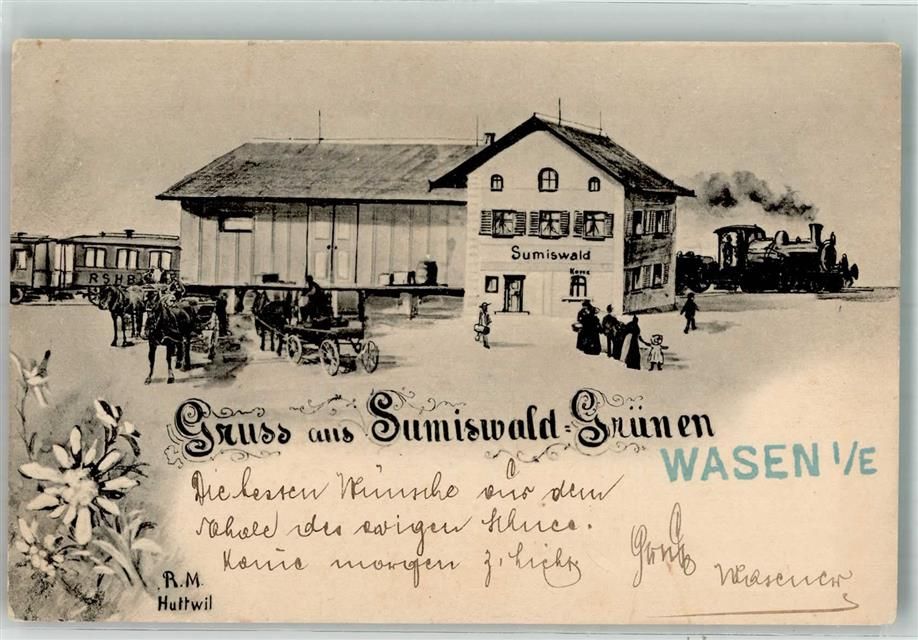 RSHB
Sumiswald
Gruss aus Sumiswald-Grünen
WASEN I/E
Die besten Wünsche aus dem
Thale des ewigen Schnee.
Komme morgen z. Licht
Gruß
Wasener
R.M.
Huttwil